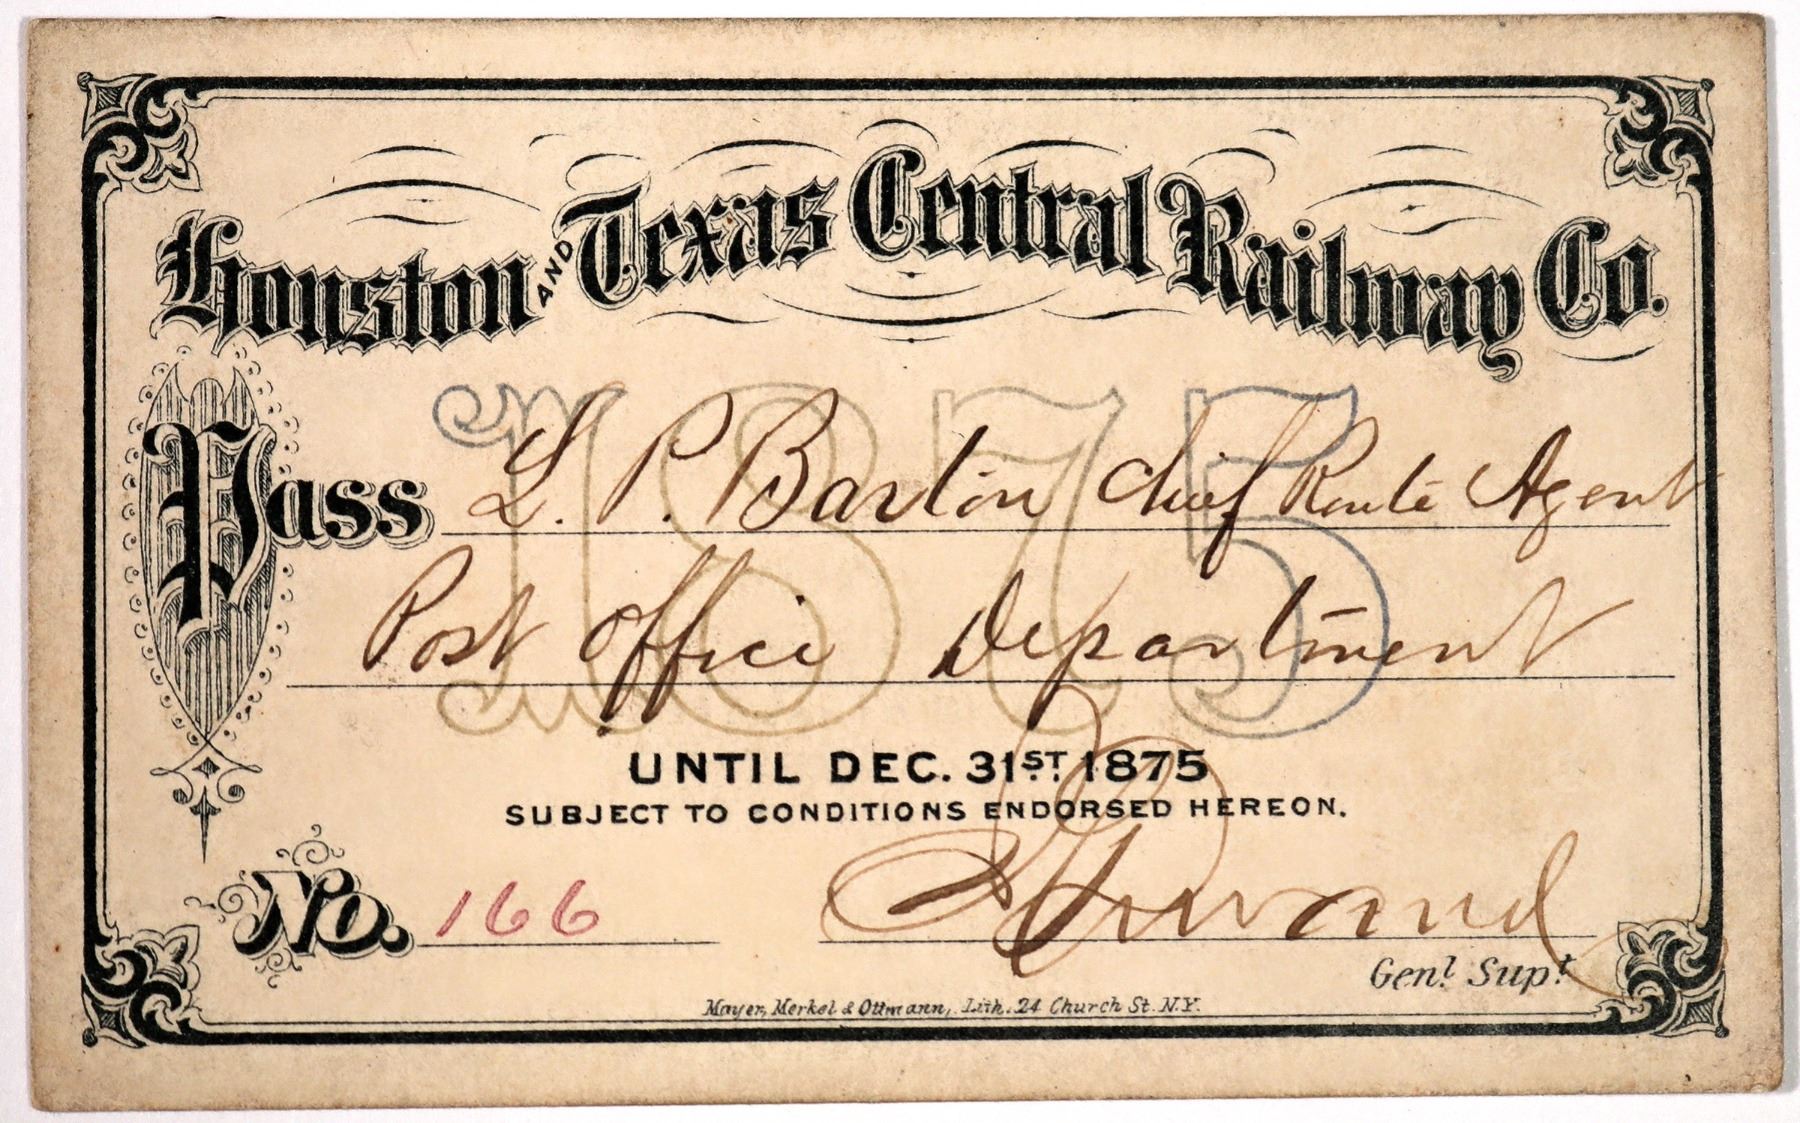 Houston AND Texas Central Railway Co.
1875
Pass L. P. Barton Chief Route Agent
Post Office Department
UNTIL DEC. 31ST. 1875
SUBJECT TO CONDITIONS ENDORSED HEREON.
No. 166
Genl. Supt.
Mayer, Merkel & Ottmann, Lith. 24 Church St. N.Y.